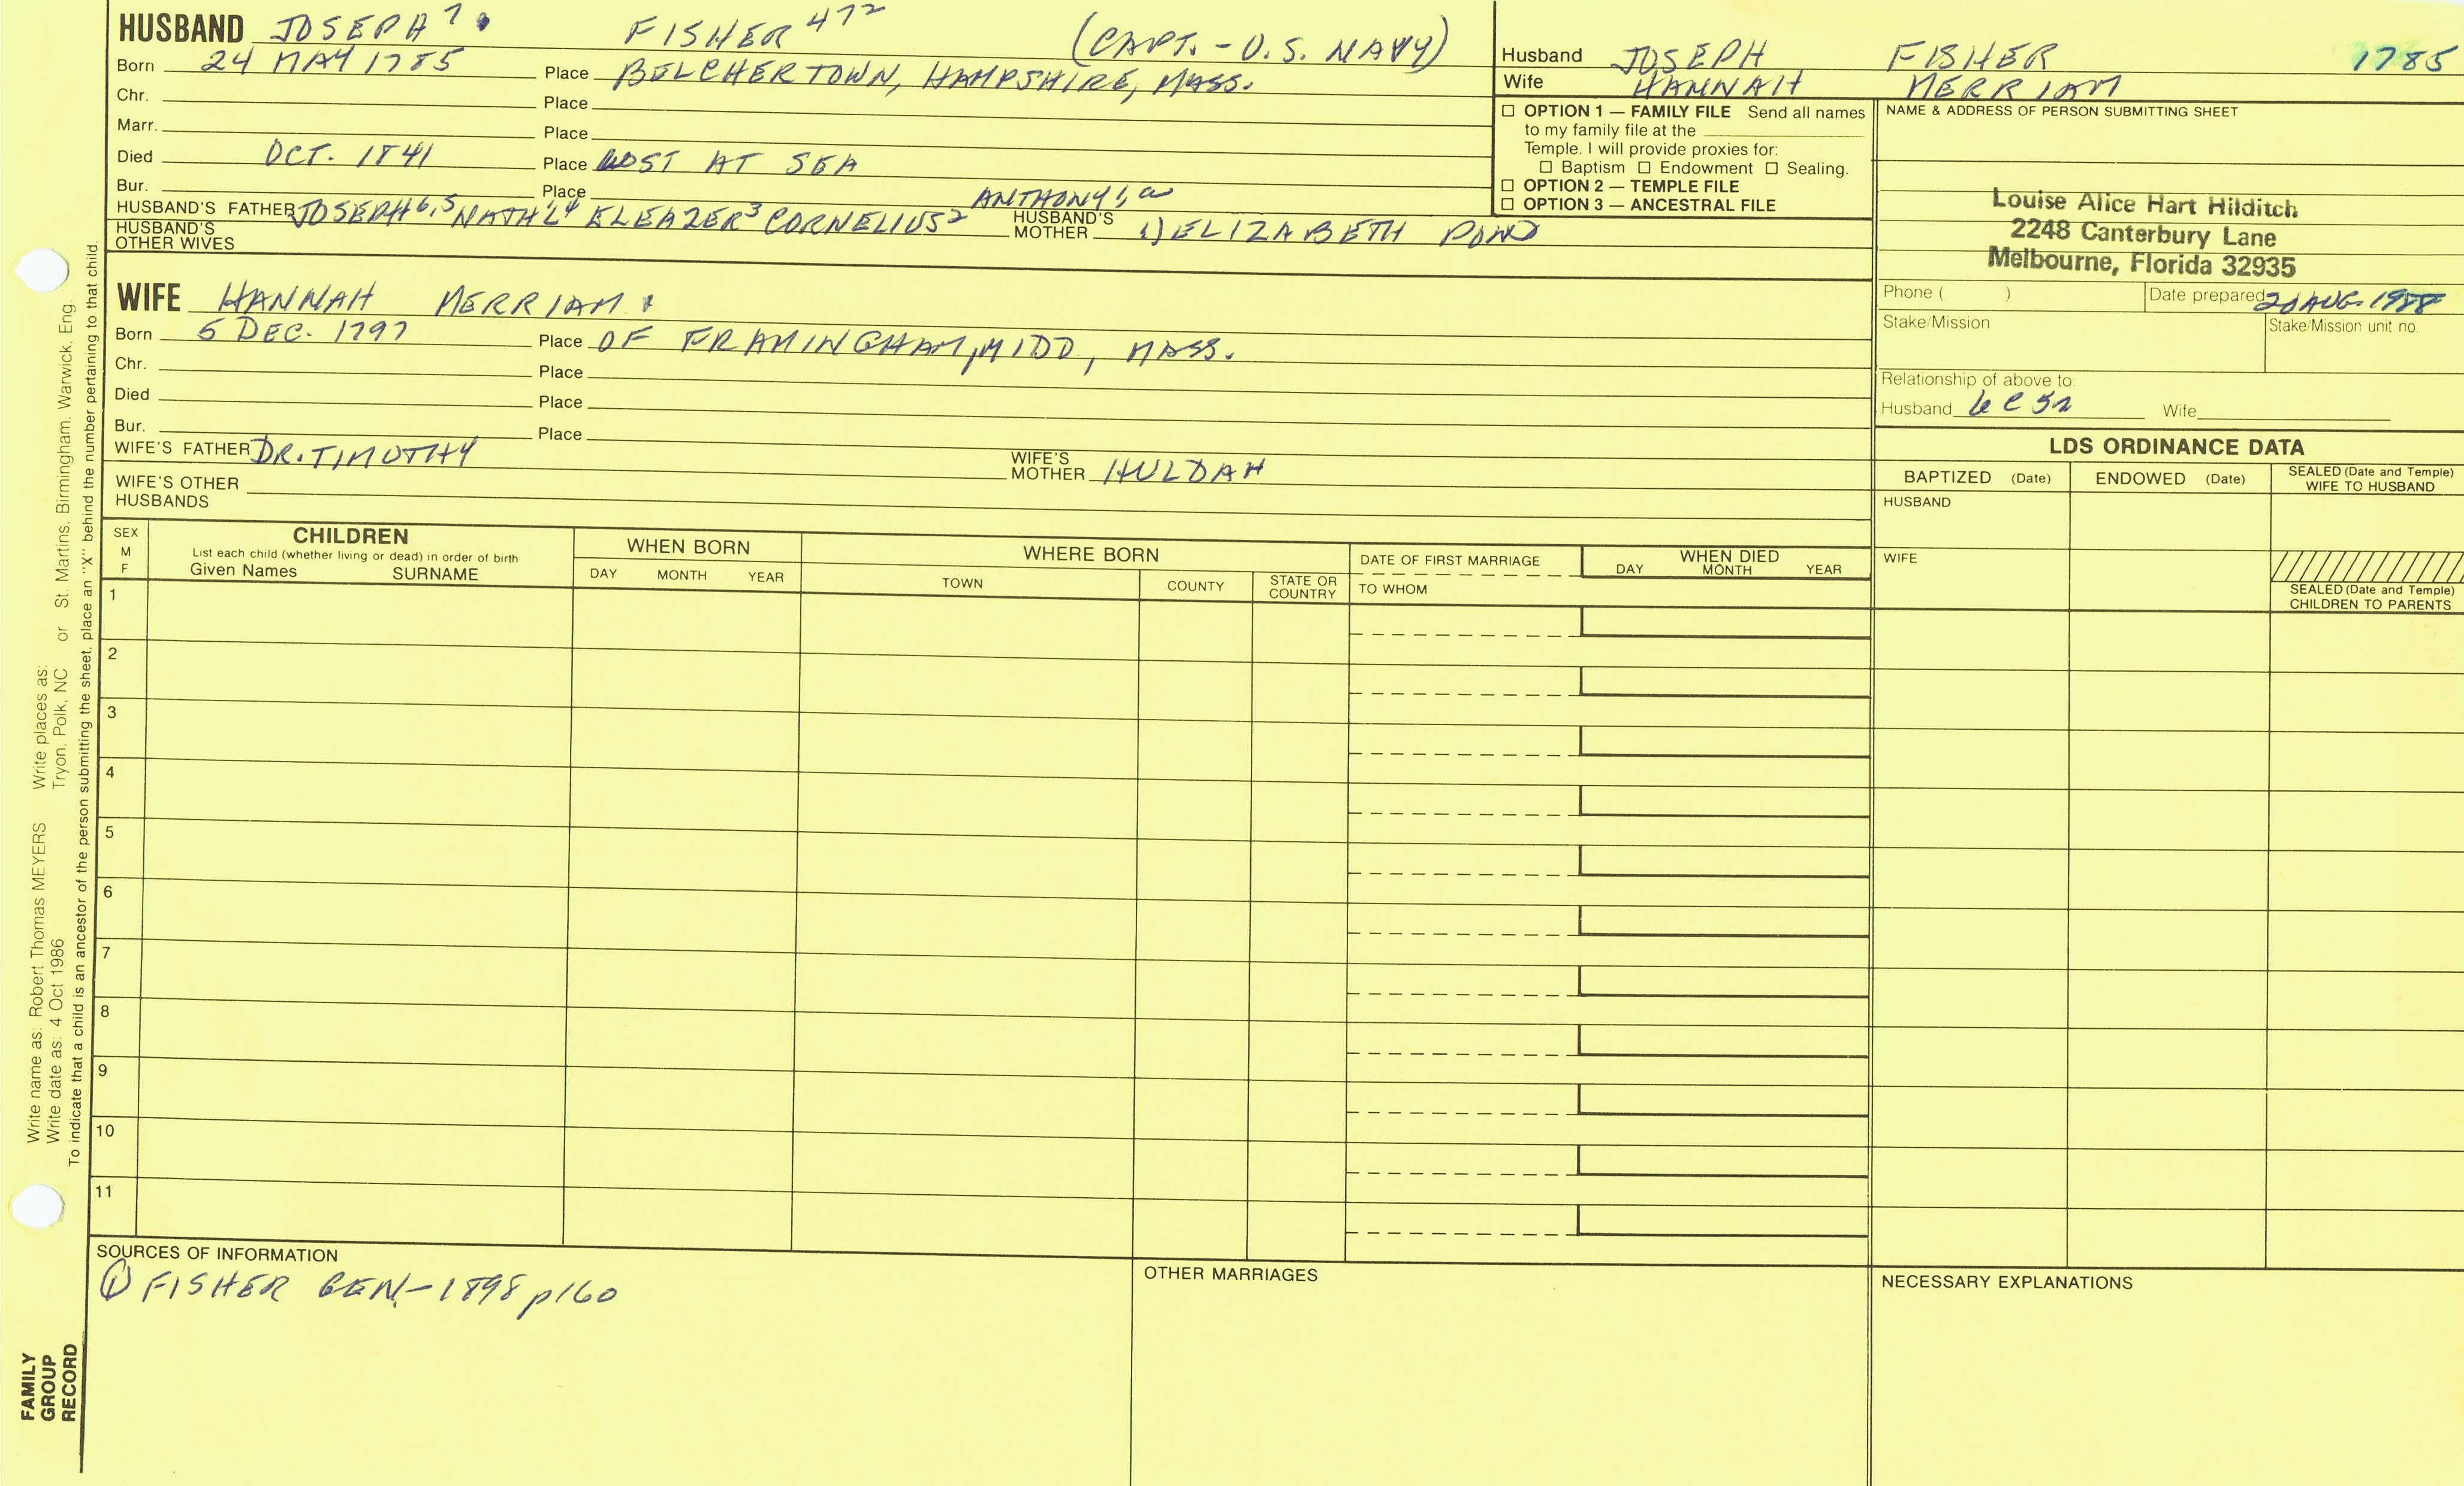 HUSBAND JOSEPH⁷ FISHER⁴⁷² (CAPT. - U.S. NAVY)
Born 24 MAY 1785 Place BELCHERTOWN, HAMPSHIRE, MASS.
Chr. Place
Marr. Place
Died OCT. 1841 Place LOST AT SEA
Bur. Place
HUSBAND'S FATHER JOSEPH⁶,⁵ NATH'L⁴ ELEAZER³ CORNELIUS² ANTHONY¹, HUSBAND'S MOTHER 1) ELIZABETH POND
HUSBAND'S OTHER WIVES
Husband JOSEPH FISHER 1785
Wife HANNAH MERRIAM
☐ OPTION 1 — FAMILY FILE Send all names
to my family file at the
Temple. I will provide proxies for:
☐ Baptism ☐ Endowment ☐ Sealing.
☐ OPTION 2 — TEMPLE FILE
☐ OPTION 3 — ANCESTRAL FILE
NAME & ADDRESS OF PERSON SUBMITTING SHEET
Louise Alice Hart Hilditch
2248 Canterbury Lane
Melbourne, Florida 32935
Phone ( ) Date prepared AUG. 1988
Stake/Mission Stake/Mission unit no.
Relationship of above to:
Husband Wife
WIFE HANNAH MERRIAM
Born 5 DEC. 1797 Place OF FRAMINGHAM, MIDD, MASS.
Chr. Place
Died Place
Bur. Place
WIFE'S FATHER DR. TIMOTHY WIFE'S MOTHER HULDAH
WIFE'S OTHER
HUSBANDS
LDS ORDINANCE DATA
BAPTIZED (Date) ENDOWED (Date) SEALED (Date and Temple) WIFE TO HUSBAND
HUSBAND
WIFE
SEALED (Date and Temple)
CHILDREN TO PARENTS
SEX
M
F
CHILDREN
List each child (whether living or dead) in order of birth
Given Names SURNAME
WHEN BORN
DAY MONTH YEAR
WHERE BORN
TOWN COUNTY STATE OR COUNTRY
DATE OF FIRST MARRIAGE
TO WHOM
WHEN DIED
DAY MONTH YEAR
1
2
3
4
5
6
7
8
9
10
11
SOURCES OF INFORMATION
① FISHER GEN.-1898 p160
OTHER MARRIAGES
NECESSARY EXPLANATIONS
Write name as: Robert Thomas MEYERS Write places as:
Write date as: 4 Oct 1986 Tryon, Polk, NC or St. Martins, Birmingham, Warwick, Eng.
To indicate that a child is an ancestor of the person submitting the sheet, place an "X" behind the number pertaining to that child.
FAMILY
GROUP
RECORD